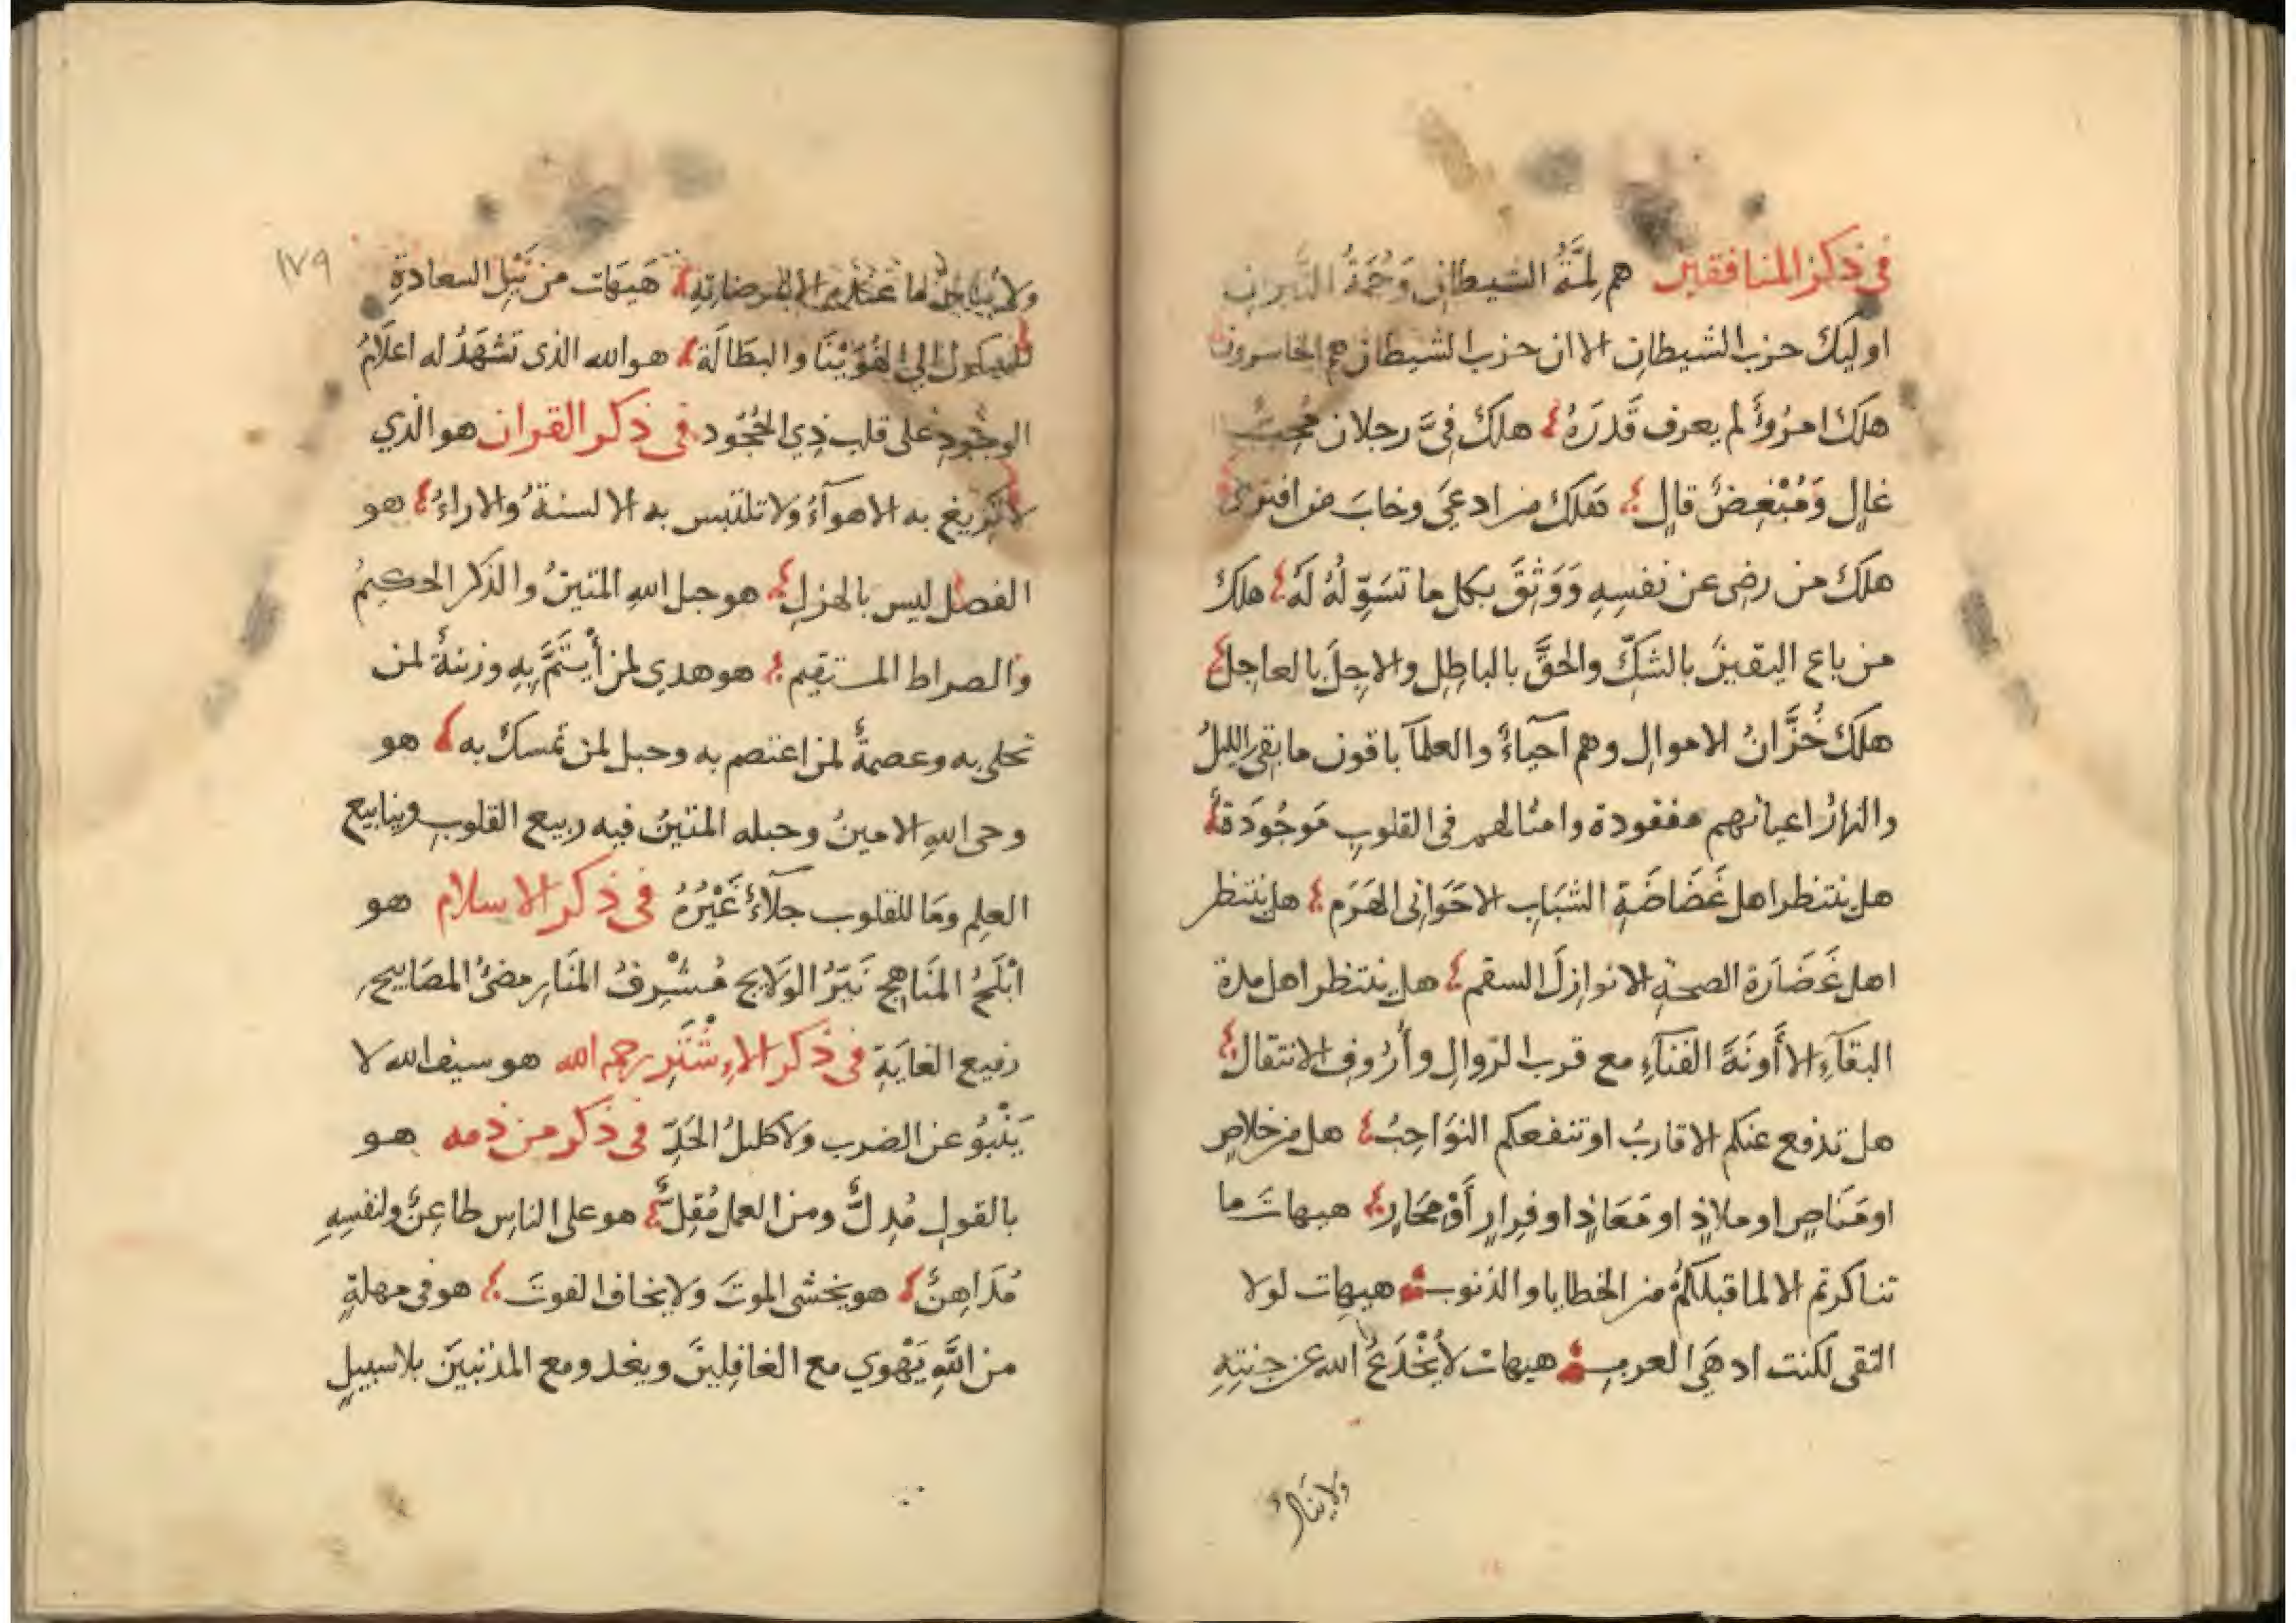 في ذكر المنافقين هم لمَّةُ الشيطانِ وَحُمَةُ النيرانِ
اوليك حزب الشيطانِ الا ان حزب الشيطان هم الخاسرون
هلَكَ امرُؤٌ لم يعرف قَدرَهُ هلكَ فِيَّ رجلان مُحِبٌّ
غالٍ وَمُبْغِضٌ قالٍ هَلكَ من ادعَى وخابَ من افترى
هلَكَ من رضى عن نفسِهِ وَوَثِقَ بكل ما تسَوِّلُهُ لَهُ هلكَ
من باع اليقينَ بالشكِّ والحقَّ بالباطِلِ والاجِلَ بالعاجِل
هلكَ خُزَّانُ الاموالِ وهم أحياءٌ والعلمآ باقون ما بقى الليلُ
والنهارُ اعيانهم مفقودة وامثالهم في القلوبِ مَوجُودَة
هل ينتظر اهل غَضَاضَةِ الشبَابِ الا حَوَانى الهَرَم هل ينتظر
اهل غَضَارَة الصحةِ الا نوازِلَ السقم هل ينتظر اهل مدة
البقآءِ الا أَونَةَ الفنآءِ مع قرب الزوالِ وأزُوفِ الانتقال
هل تدفع عنكم الاقاربُ او تنفعكم النوَاحِبُ هل من خلاصٍ
او مَنَاصٍ او ملاذٍ او مَعَاذٍ او فِرارٍ أَوْ مَحَارٍ هيهاتَ ما
تناكرتم الا لما قبلكم من الخطايا والذنوب هيهات لولا
التقى لكنت ادهَى العرب هيهات لا يُخْدَعُ الله عن جنتِهِ
ولا ينال
١٧٩
ولا يُنالُ ما عنده الا بمرضاتِهِ هَيهَات من نَيْلِ السعادةِ
السكون الى الهُوَيْنَا والبطَالَة هو الله الذى تَشهَدُ له اعلَامُ
الوجودِ على قلب ذِي الجُحُود في ذكر القران هو الذي
لا تَزيغ به الاهوآءُ ولا تلتبس به الالسنةُ والاراءُ هو
الفصل ليس بالهزلِ هو حبل اللهِ المتينُ والذكر الحكيمُ
والصراط المستقيم هو هدى لمن أيتَمَّ بِهِ وزينةٌ لمن
تحلى به وعصمةٌ لمن اعتصم به وحبل لمن تمسكَ به هو
وحى اللهِ الامينُ وحبله المتينُ فيه ربيع القلوبِ وينابيع
العِلمِ ومَا للقلوب جلآءٌ غَيْرُهُ في ذكر الاسلام هو
ابْلَجُ المنَاهِج نَيّرُ الولَايج مُشْرِفُ المنَارِ مضئُ المصَابيح
رفيع الغايَةِ في ذكر الاشْتَر رحمه الله هو سيف الله لا
يَنْبُوُ عن الضرب ولا كليلُ الحَدِّ في ذكر من ذمه هو
بالقولِ مُدِلٌّ ومن العمل مُقِلٌّ هو على الناسِ طاعِنٌ ولنفسِهِ
مُدَاهِنٌ هو يخشى الموتَ ولا يخاف الفوتَ هو فى مهلةٍ
من اللَّهِ يَهْوِي مع الغافِلِينَ ويغدو مع المذنبينَ بلا سبيلٍ